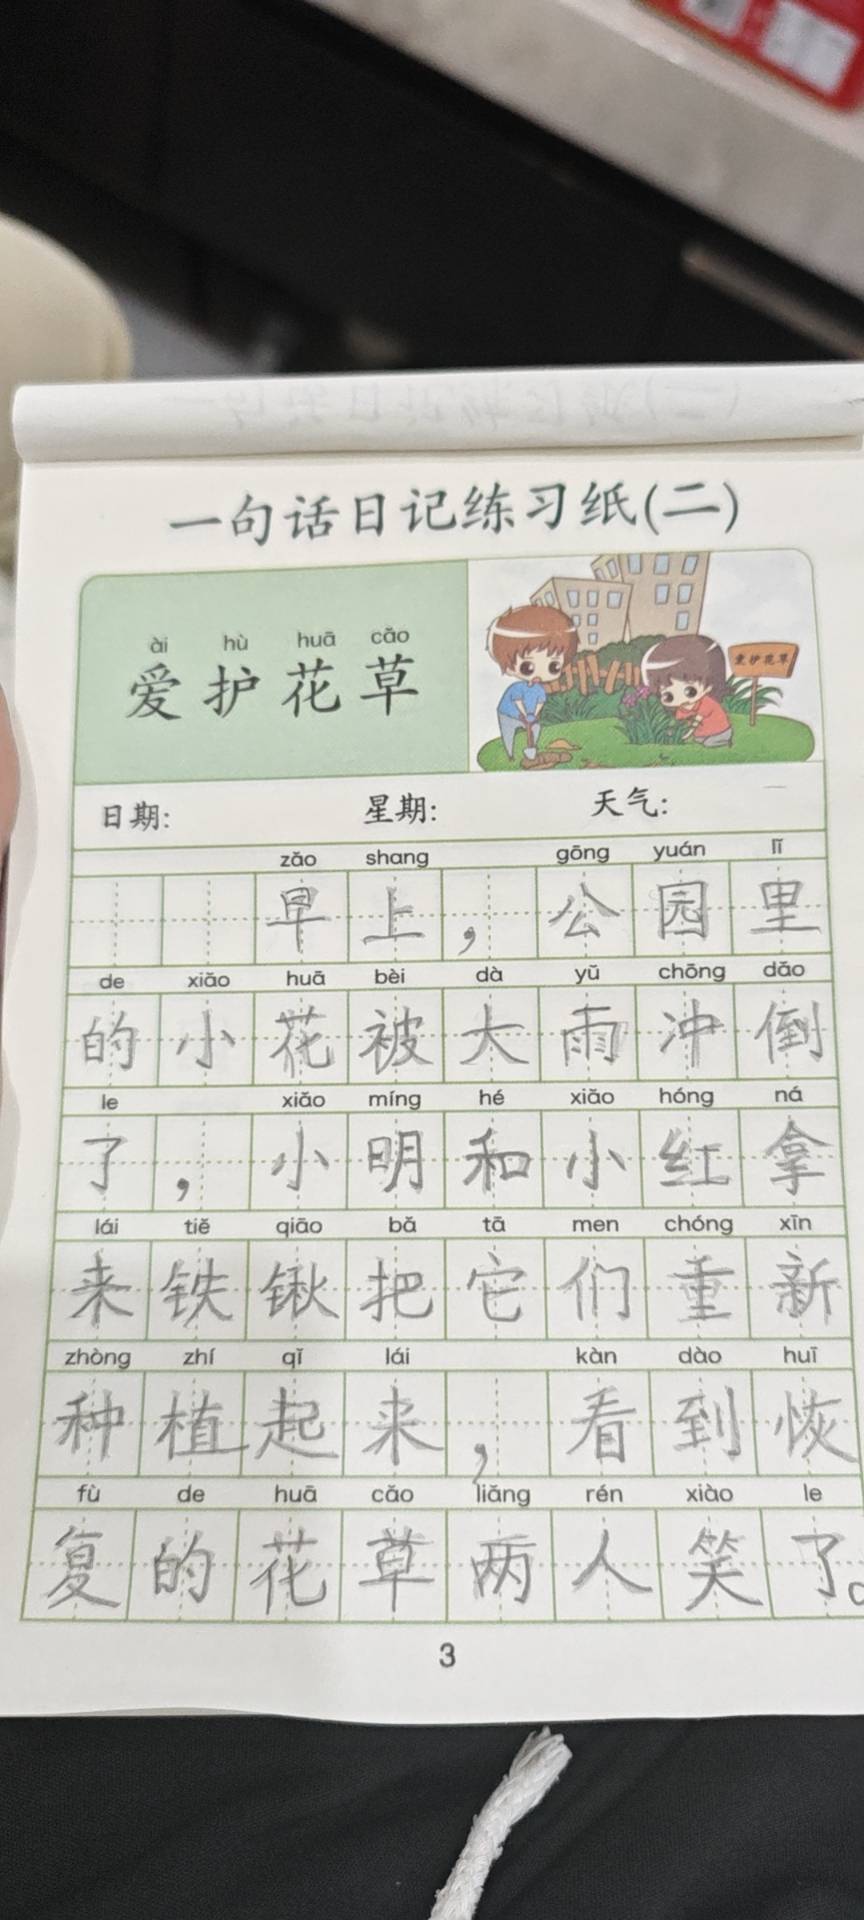 一句话日记练习纸(二)
ài hù huā cǎo
爱护花草
爱护花草
日期: 星期: 天气:
zǎo shang gōng yuán lǐ
早上，公园里
de xiǎo huā bèi dà yǔ chōng dǎo
的小花被大雨冲倒
le xiǎo míng hé xiǎo hóng ná
了，小明和小红拿
lái tiě qiāo bǎ tā men chóng xīn
来铁锹把它们重新
zhòng zhí qǐ lái kàn dào huī
种植起来，看到恢
fù de huā cǎo liǎng rén xiào le
复的花草两人笑了。
3